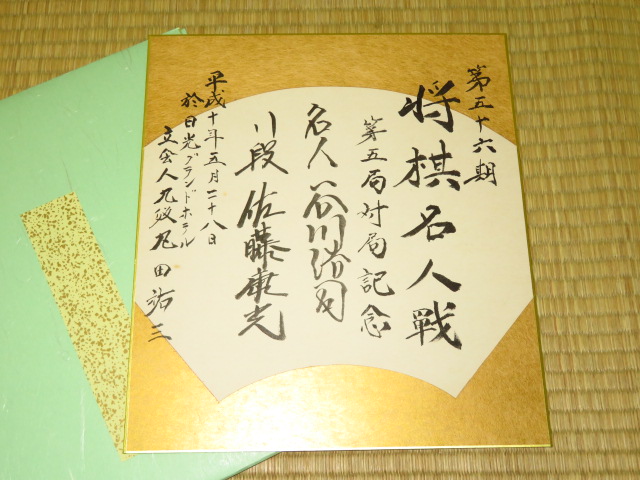 第五十六期
将棋名人戦
第五局対局記念
名人 谷川浩司
八段 佐藤康光
平成十年五月二十八日
於日光グランドホテル
立会人九段丸田祐三